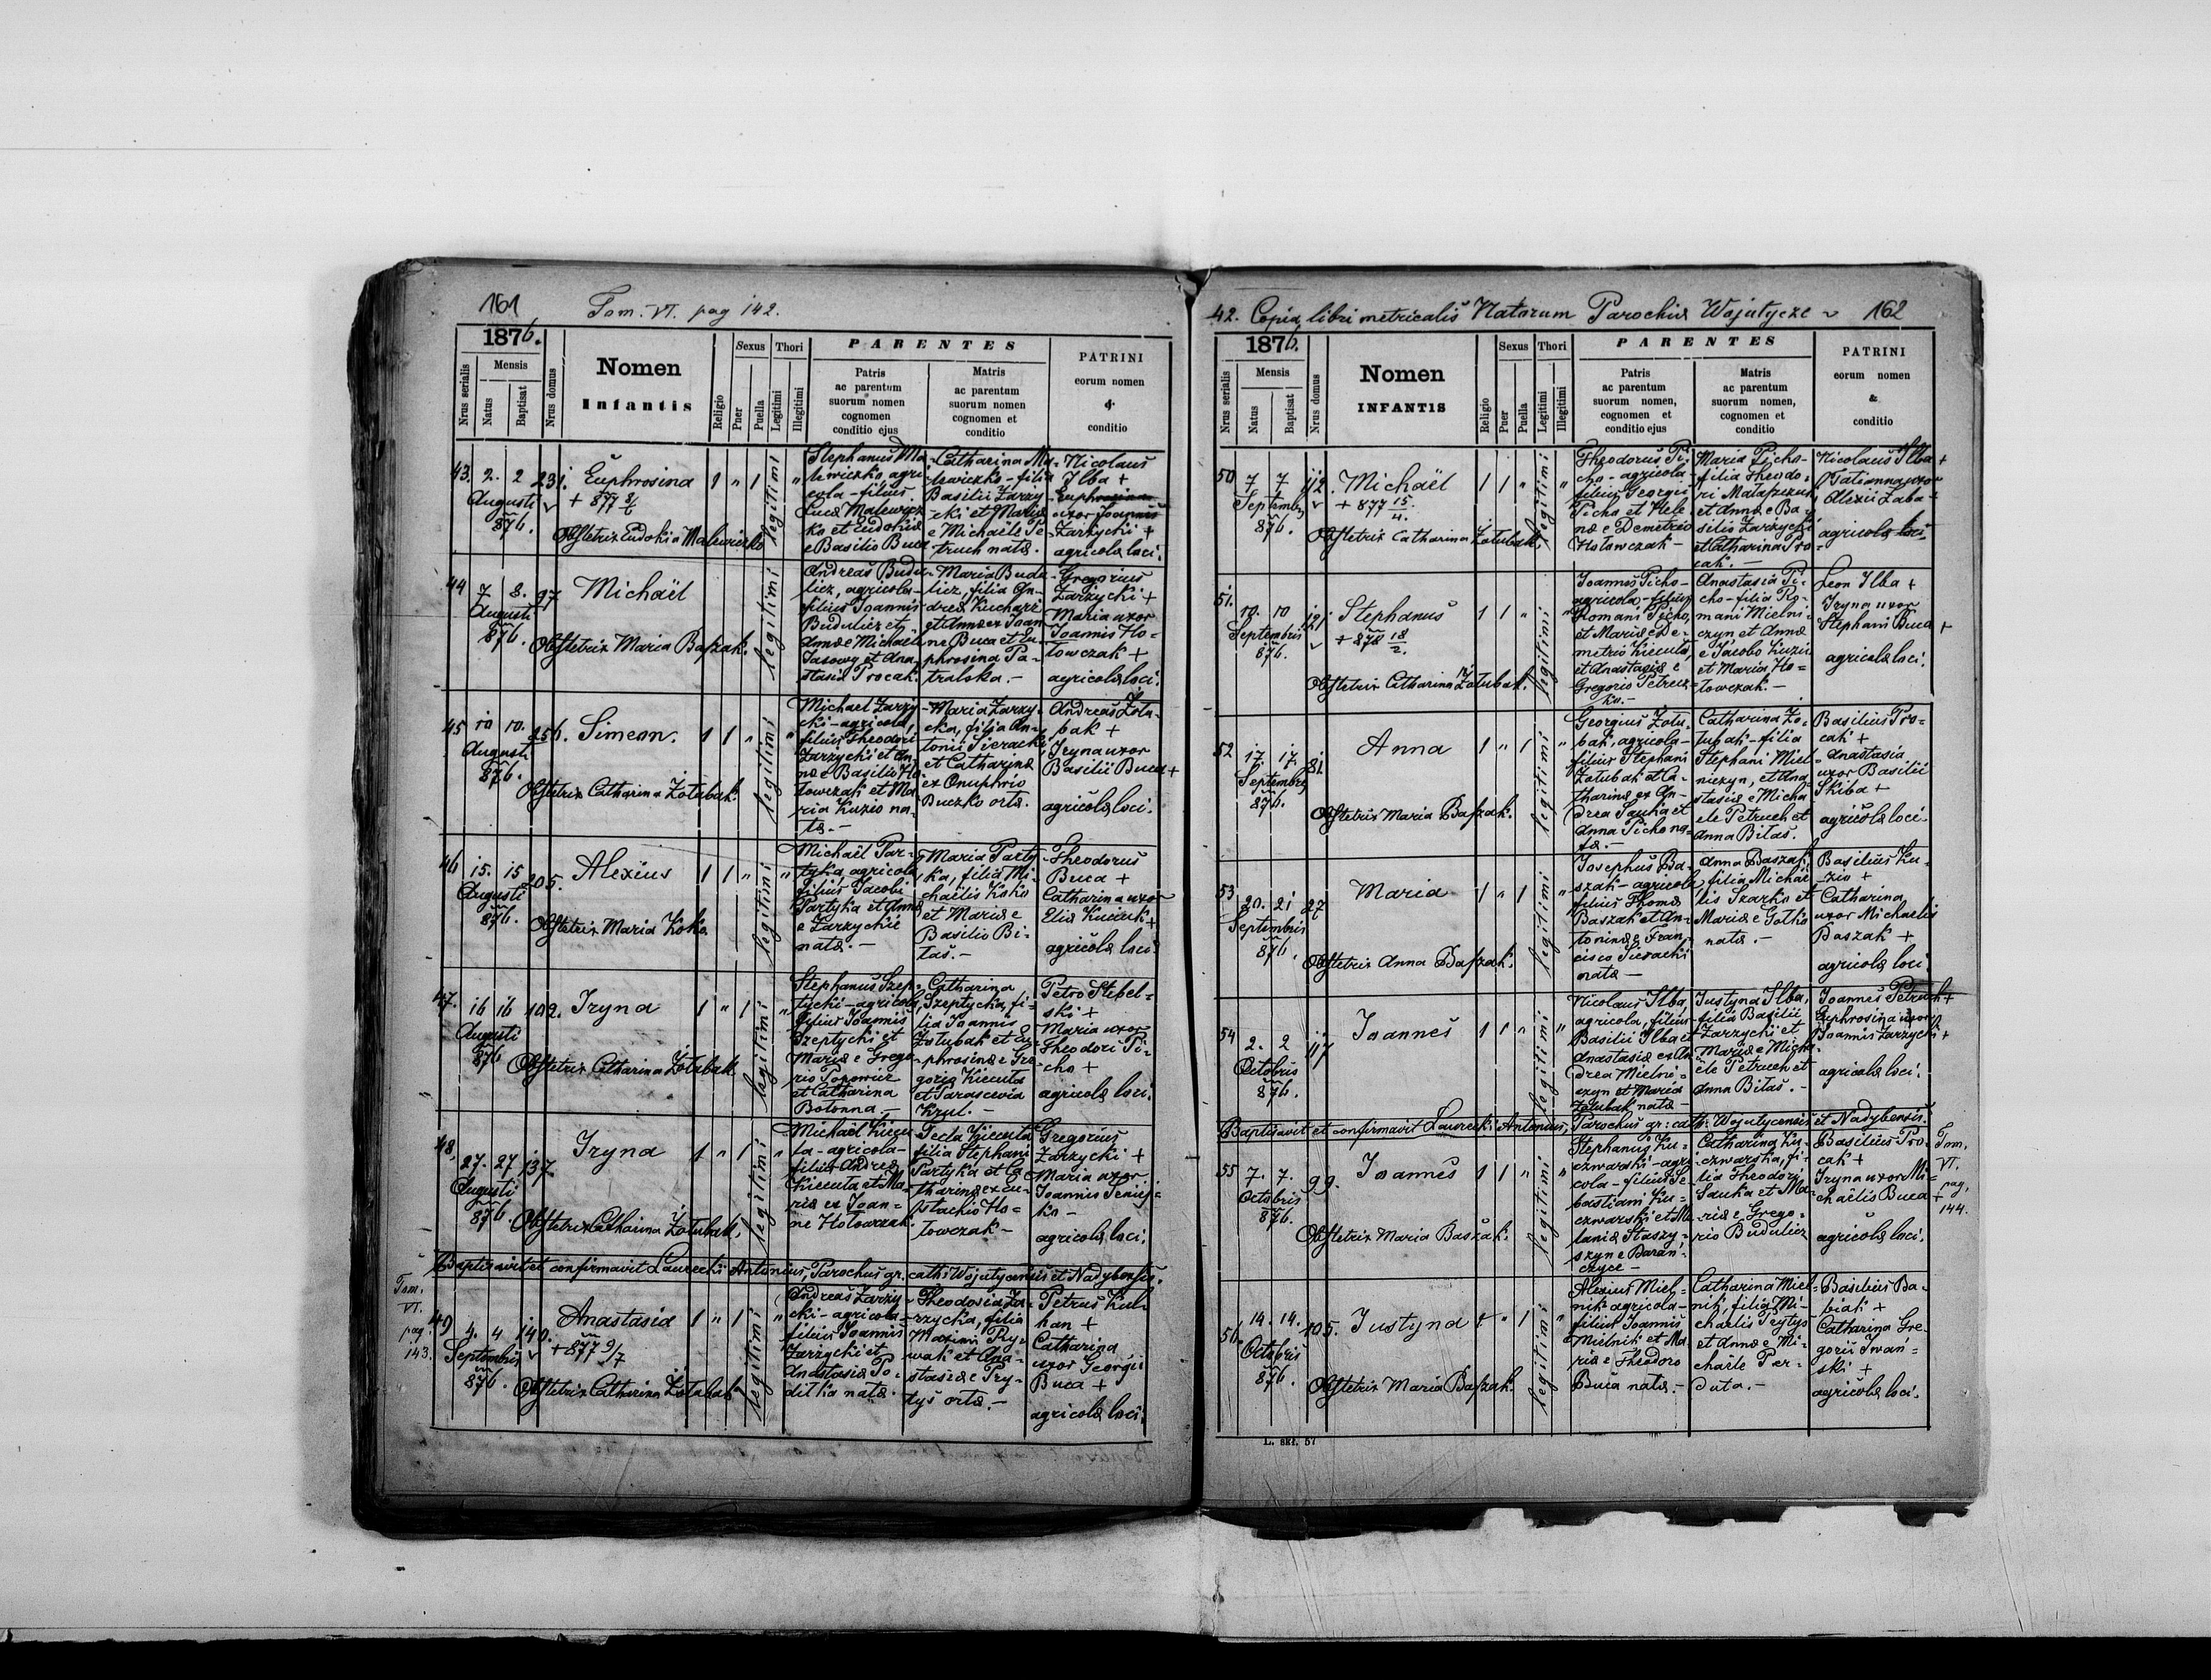 161
Tom. VI. pag 142.
1876.
Nrus serialis
Mensis
Natus
Baptisat
Nrus domus
Nomen
Infantis
Religio
Sexus
Puer
Puella
Thori
Legitimi
Illegitimi
PARENTES
Patris
ac parentum
suorum nomen
cognomen
conditio ejus
Matris
ac parentum
suorum nomen
cognomen et
conditio
PATRINI
eorum nomen
&
conditio
43. 2. 2 231. Euphrosina 1 " 1 legitimi "
Augusti
876.
+ 877 8/6
Obstetrix Eudokia Malewiczko
Stephanus Ma-
lewiczko agri-
cola - filius
Lucæ Malewicz-
ko et Eudokiæ
e Basilio Buca
Catharina Ma-
lewiczko - filia
Basilii Zarzy-
cki et Mariæ
e Michaële Pe-
truch nata.
Nicolaus
Ilba +
Euphrosina
uxor Joannis
Zarzycki +
agricolæ loci.
44 7 8. 97 Michaël legitimi
Augusti
876.
Obstetrix Maria Baszak.
Andreas Budu-
licz, agricola -
filius Joannis
Budulicz et
Annæ e Michaële
Jasowy et Ana-
stasia Procak.
Maria Budu-
licz, filia An-
dreæ Kucharz
et Annæ ex Joan-
ne Buca et Eu-
phrosina Pa-
tralska. -
Gregorius
Zarzycki +
Maria uxor
Joannis Ho-
towczak +
agricolæ loci.
45 10 10. 256. Simeon. 1 1 " legitimi "
Augusti
876.
Obstetrix Catharina Żołubak.
Michael Zarzy-
cki - agricola,
filius Theodori
Zarzycki et An-
næ e Basilio Ho-
towczak et Ma-
ria Kuzio na-
tæ. -
Maria Zarzy-
cka, filia An-
tonii Sieracki
et Catharinæ
ex Onuphrio
Buczko ortæ.
Andreas Żołu-
bak +
Iryna uxor
Basilii Buca +
agricolæ loci.
46 15. 15 205. Alexius 1 1 " legitimi "
Augusti
876.
Obstetrix Maria Koko.
Michaël Par-
tyka, agricola,
filius Jacobi
Partyka et Annæ
e Zarzyckie
nata. -
Maria Party-
ka, filia Mi-
chaëlis Koko
et Mariæ e
Basilio Bi-
łas. -
Theodorus
Buca +
Catharina uxor
Eliæ Kuciuk +
agricolæ loci.
47. 16 16 102. Iryna 1 " 1 legitimi "
Augusti
876
Obstetrix Catharina Żołubak
Stephanus Szep-
tycki - agricola,
filius Joannis
Szeptycki et
Mariæ e Grego-
rio Popowicz
et Catharina
Botonna. -
Catharina
Szeptycka, fi-
lia Joannis
Żołubak et Eu-
phrosinæ e Gre-
gorio Kiecuła
et Parascevia
Kzyl. -
Petro Stebel-
ski +
Maria uxor
Theodori Pi-
cho +
agricolæ loci.
48. 27. 27 137. Iryna 1 " 1 legitimi "
Augusti
876.
Obstetrix Catharina Żołubak.
Michaël Kiecu-
ła - agricola -
filius Andreæ
Kiecuła et Ma-
riæ ex Joan-
ne Hołowczak.
Tecla Kiecuła
filia Stephani
Partyka et Ca-
tharinæ ex Eu-
stachio Ho-
łowczak -
Gregorius
Zarzycki +
Maria uxor
Joannis
ko -
agricolæ loci.
Baptisavit et confirmavit Laurecki Antonius, Parochus gr. cath: Wojutycensis et Nadybensis.
Tom.
VI.
pag.
143.
49 4. 4 140. Anastasia 1 " 1 legitimi "
Septembris
876.
+ 877 9/7
Obstetrix Catharina Żołubak
Andreas Zarzy-
cki - agricola -
filius Joannis
Zarzycki et
Anastasia Po-
ditka nata.
Theodosia Za-
rzycka, filia
Maximi Ry-
wak et Ana-
stasiæ e Pry-
tys ortæ. -
Petrus Kul-
han +
Catharina
uxor Georgii
Buca +
agricolæ loci.
42. Copia libri metricalis Natorum Parochiæ Wojutycze 162
1876.
Nrus serialis
Mensis
Natus
Baptisat
Nrus domus
Nomen
INFANTIS
Religio
Sexus
Puer
Puella
Thori
Legitimi
Illegitimi
PARENTES
Patris
ac parentum
suorum nomen,
cognomen et
conditio ejus
Matris
ac parentum
suorum nomen,
cognomen et
conditio
PATRINI
eorum nomen
&
conditio
50 7 7 112. Michaël 1 1 " legitimi "
Septembris
876.
+ 877 15/4.
Obstetrix Catharina Żołubak.
Theodorus Pi-
cho - agricola -
filius Georgii
Picho et Hele-
næ e Demetrio
Hołowczak -
Maria Picho-
filia Theodo-
ri Matapczuk
et Annæ e Ba-
silio Zarzycki
et Catharina Pro-
cak. -
Nicolaus Ilba +
Tatianna uxor
Alexii Zaba -
agricolæ loci
51. 10. 10 121 Stephanus 1 1 " legitimi "
Septembris
876.
+ 878 18/2.
Obstetrix Catharina Żołubak.
Joannes Picho -
agricola, - filius
Romani Picho,
et Mariæ e De-
metrio Kiecuła,
et Anastasia e
Gregorio Petrecz-
ko. -
Anastasia Pi-
cho - filia Ro-
mani Mielni-
czyn et Annæ
e Jacobo Kuzio
et Maria Ho-
łowczak. -
Leon Ilba +
Iryna uxor
Stephani Buca +
agricolæ loci.
52 17. 17. 81. Anna 1 " 1 legitimi
Septembris
876.
Obstetrix Maria Baszak.
Georgius Żołu-
bak, agricola -
filius Stephani
Żołubak et Ca-
tharinæ ex An-
drea Sauka et
Anna Picho na-
ta. -
Catharina Żo-
łubak - filia
Stephani Miel-
niczyn, et Ana-
stasiæ e Micha-
ele Petruch et
Anna Biłas.
Basilius Pro-
cak +
Anastasia
uxor Basilii
Skiba +
agricolæ loci.
53 20. 21 27 Maria 1 " 1 legitimi "
Septembris
876.
Obstetrix Anna Baszak.
Josephus Ba-
szak - agricola
filius Thomæ
Baszak et An-
toninæ e Fran-
cisco Sieracki
nata -
Anna Baszak,
filia Michaë-
lis Szarko et
Mariæ e Gotko
nata. -
Basilius Ku-
zio +
Catharina
uxor Michaelis
Baszak +
agricolæ loci
54 2. 2 117 Joannes 1 1 " legitimi "
Octobris
876.
Nicolaus Ilba,
agricola, filius
Basilii Ilba et
Anastasiæ ex An-
drea Mielni-
czyn et Maria
Żołubak nata -
Justyna Ilba,
filia Basilii
Zarzycki et
Mariæ e Micha-
ële Petruch et
Anna Biłas. -
Joannes Petruch +
Euphrosina uxor
Joannis Zarzycki +
agricolæ loci.
Baptisavit et confirmavit Laurecki Antonius, Parochus gr: cath: Wojutycensis et Nadybensis.
55 7. 7. 99. Joannes 1 1 " legitimi "
Octobris
876.
Obstetrix Maria Baszak.
Stephanus Ku-
czwarski - agri-
cola - filius Se-
bastiani Ku-
czwarski et Me-
laniæ Staszy-
szyn e Baran-
czyce -
Catharina Ku-
czwarska, fi-
lia Theodori
Sauka et Ma-
riæ e Grego-
rio Budulicz
Basilius Pro-
cak +
Iryna uxor Mi-
chaëlis Buca +
agricolæ loci.
Tom.
VI.
pag.
144.
56. 14. 14. 105. Justyna 1 " 1 legitimi "
Octobris
876.
Obstetrix Maria Baszak.
Alexius Miel-
nik agricola -
filius Joannis
Mielnik et Ma-
riæ e Theodoro
Buca nata. -
Catharina Miel-
nik, filia Mi-
chaëlis Prytys
et Annæ e Mi-
chaële Per-
duta. -
Basilius Ba-
biak +
Catharina Gre-
gorii Iwań-
ski +
agricolæ loci.
L. skł. 57